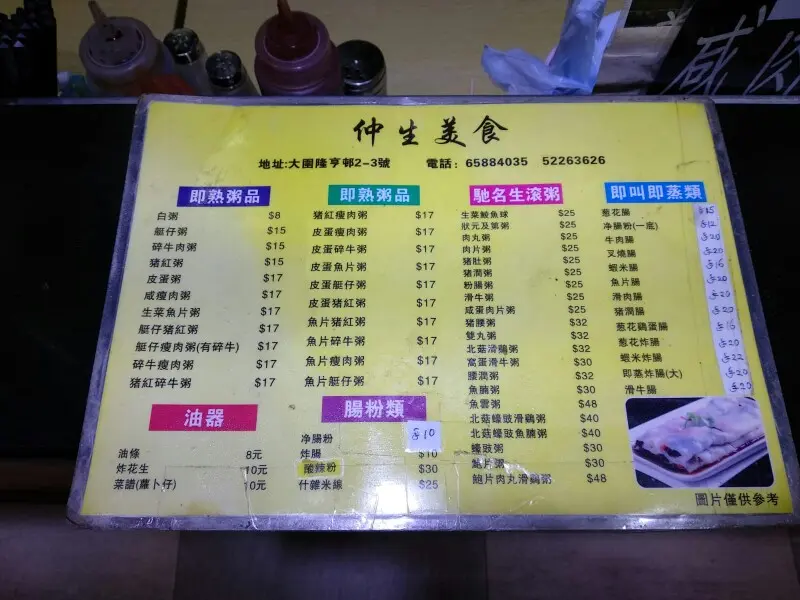 仲生美食
地址:大圍隆亨邨2-3號 電話: 65884035 52263626
即熟粥品
白粥 $8
艇仔粥 $15
碎牛肉粥 $15
豬紅粥 $15
皮蛋粥 $17
咸瘦肉粥 $17
生菜魚片粥 $17
艇仔豬紅粥 $17
艇仔瘦肉粥(有碎牛) $17
碎牛瘦肉粥 $17
豬紅碎牛粥 $17
油器
油條 8元
炸花生 10元
菜譜(蘿卜仔) 10元
即熟粥品
豬紅瘦肉粥 $17
皮蛋瘦肉粥 $17
皮蛋碎牛粥 $17
皮蛋魚片粥 $17
皮蛋艇仔粥 $17
皮蛋豬紅粥 $17
魚片豬紅粥 $17
魚片碎牛粥 $17
魚片瘦肉粥 $17
魚片艇仔粥 $17
腸粉類
净腸粉 $10
炸腸 $10
酸辣粉 $30
什雜米線 $25
馳名生滾粥
生菜鯪魚球 $25
狀元及第粥 $25
肉丸粥 $25
肉片粥 $25
豬肚粥 $25
豬潤粥 $25
粉腸粥 $25
滑牛粥 $25
咸蛋肉片粥 $25
豬腰粥 $32
雙丸粥 $32
北菇滑鷄粥 $32
窩蛋滑牛粥 $30
腰潤粥 $32
魚腩粥 $30
魚雲粥 $48
北菇蠔豉滑鷄粥 $40
北菇蠔豉魚腩粥 $40
蠔豉粥 $30
鮑片粥 $30
鮑片肉丸滑鷄粥 $48
即叫即蒸類
葱花腸 $15
净腸粉(一底) $12
牛肉腸 $20
叉燒腸 $20
蝦米腸 $16
魚片腸 $20
滑肉腸 $20
豬潤腸 $20
葱花鷄蛋腸 $16
葱花炸腸 $20
蝦米炸腸 $22
即蒸炸腸(大) $20
滑牛腸 $20
圖片僅供參考
咸